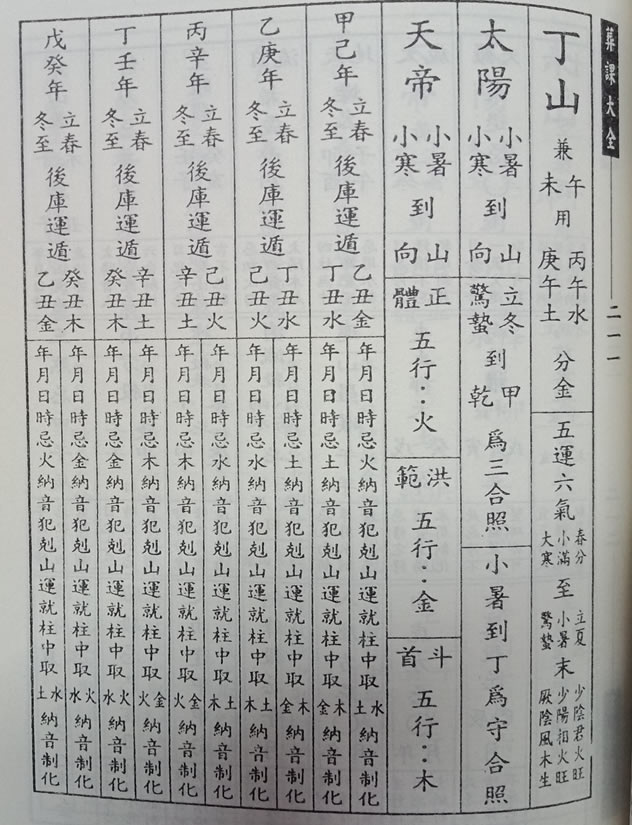 葬課大全
二一一
丁山 兼 午未 用 丙午水 庚午土 分金
五運六氣 春分 小滿 大寒 至 立夏 小暑 驚蟄 末 少陰君火旺 少陽相火旺 厥陰風木生
太陽 小暑 小寒 到 山向
立冬 驚蟄 到 甲 乾 為三合照
小暑到丁為守合照
天帝 小暑 小寒 到 山向
正體五行：火
洪範五行：金
斗首五行：木
甲己年 立春 冬至 後庫運遁 乙丑金 丁丑水
年月日時忌火納音犯剋山運就柱中取水土納音制化
年月日時忌土納音犯剋山運就柱中取木金納音制化
乙庚年 立春 冬至 後庫運遁 丁丑水 己丑火
年月日時忌土納音犯剋山運就柱中取木金納音制化
年月日時忌水納音犯剋山運就柱中取土木納音制化
丙辛年 立春 冬至 後庫運遁 己丑火 辛丑土
年月日時忌水納音犯剋山運就柱中取土木納音制化
年月日時忌木納音犯剋山運就柱中取金火納音制化
丁壬年 立春 冬至 後庫運遁 辛丑土 癸丑木
年月日時忌木納音犯剋山運就柱中取金火納音制化
年月日時忌金納音犯剋山運就柱中取火水納音制化
戊癸年 立春 冬至 後庫運遁 癸丑木 乙丑金
年月日時忌金納音犯剋山運就柱中取火水納音制化
年月日時忌火納音犯剋山運就柱中取水土納音制化